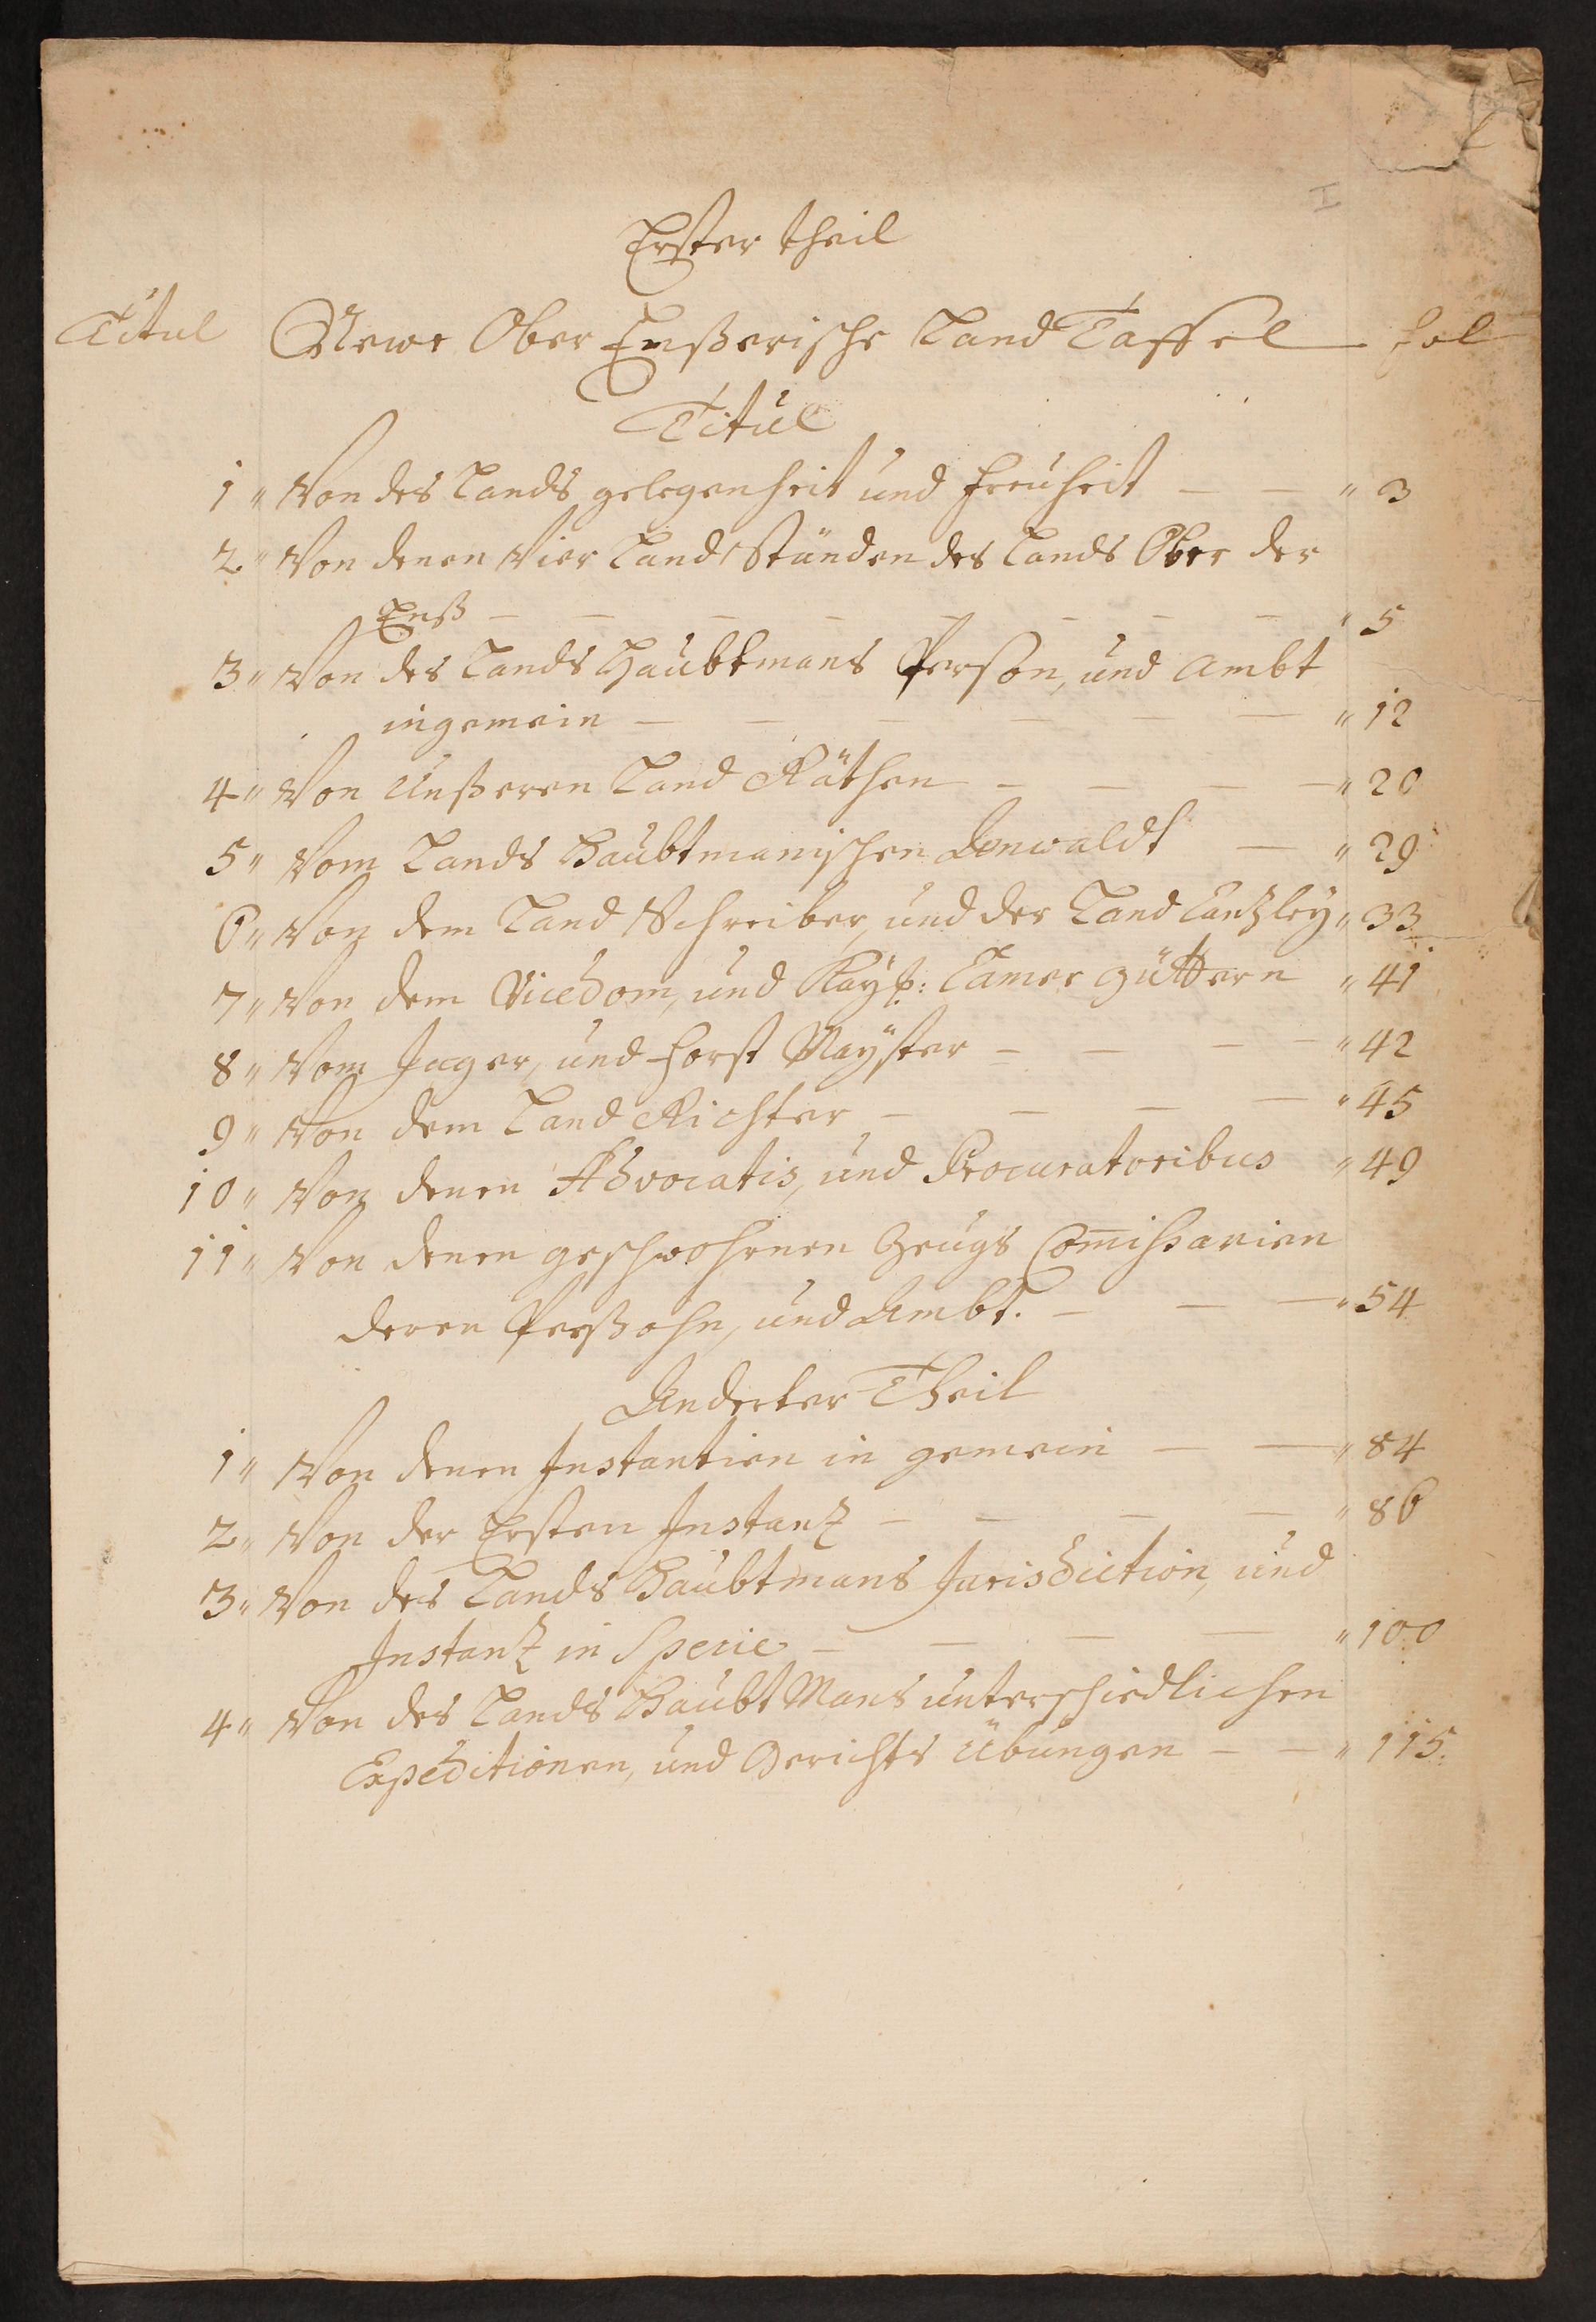 I
Erster theil
Titul Newe Ober Enßerische Land Taffel fol
Titul
1 „ Von des Lands gelegenheit und freÿheit — — „ 3
2 „ Von denen Vier Land Ständen des Lands Ober der
Enß — — — — — — — — „ 5
3 „ Von des Lands Haubtmans Person, und Ambt
ingemein — — — — — — „ 12
4 „ Von Unßeren Land Räthen — — — — „ 20
5 „ Vom Lands Haubtmanischen Anwaldt — „ 29
6 „ Von dem Land Schreiber, und der Land Canzleÿ „ 33
7 „ Von dem Vicedom, und Kaÿß: Camer güttern „ 41
8 „ Vom Jager, und Forst Maÿster — — — — „ 42
9 „ Von dem Land Richter — — — — „ 45
10 „ Von denen Advocatis, und Procuratoribus „ 49
11 „ Von denen geschwohrnen Zeugs Com̄issarien
deren Perßohn, und Ambt. — — — „ 54
Anderter Theil
1 „ Von denen Instantien in gemein — — „ 84
2 „ Von der Ersten Instanz — — — — „ 86
3 „ Von des Lands Haubtmans Jurisdiction, und
Instanz in Specie — — — — „ 100
4 „ Von des Lands Haubt Mans unterschiedlichen
Expeditionen, und Gerichts Übungen — — „ 115.